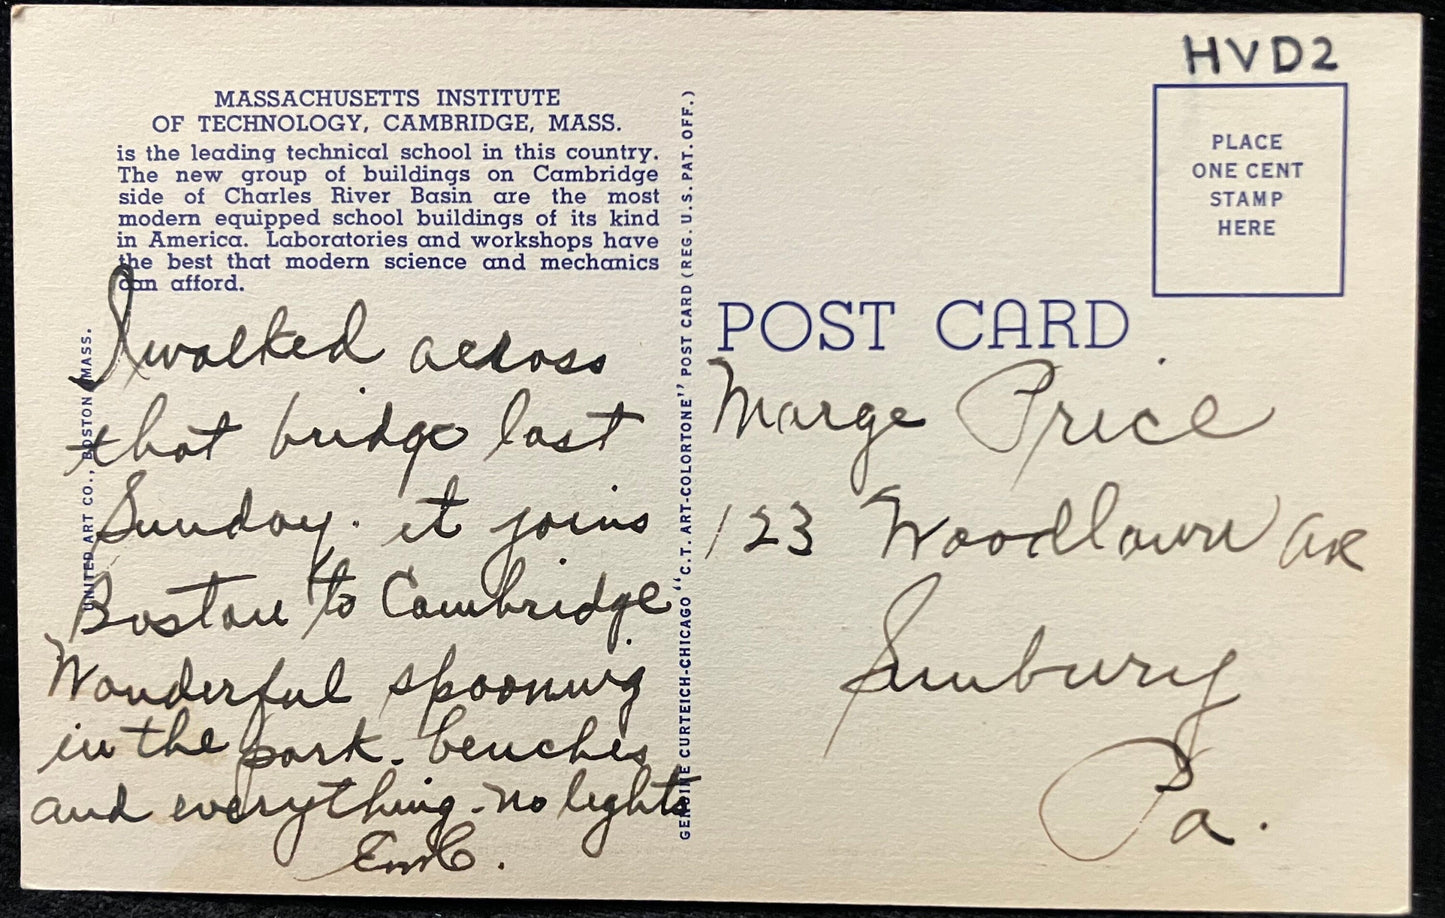 HVD2
MASSACHUSETTS INSTITUTE
OF TECHNOLOGY, CAMBRIDGE, MASS.
is the leading technical school in this country.
The new group of buildings on Cambridge
side of Charles River Basin are the most
modern equipped school buildings of its kind
in America. Laboratories and workshops have
the best that modern science and mechanics
can afford.
I walked across
that bridge last
Sunday. it joins
Boston to Cambridge
Wonderful spooning
in the park. benches
and everything - no lights
EmC.
UNITED ART CO., BOSTON, MASS.
GENUINE CURTEICH-CHICAGO "C.T. ART-COLORTONE" POST CARD (REG. U.S. PAT. OFF.)
PLACE
ONE CENT
STAMP
HERE
POST CARD
Marge Price
123 Woodlawn
Sunbury
Pa.